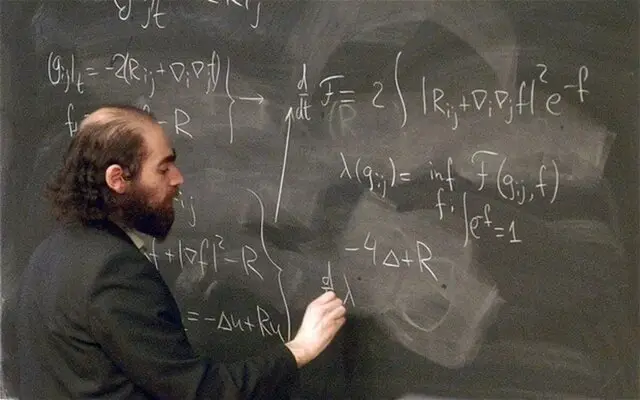 g_t R_ij
(g_ij)_t = -2(R_ij + ∇_i∇_j f)
f - R
→ d/dt F = 2 ∫ |R_ij + ∇_i∇_j f|² e^-f
λ(g_ij) = inf F(g_ij, f)
f, ∫e^-f = 1
ij
f + |∇f|² - R
-4Δ + R
= -Δu + Ru
d λ